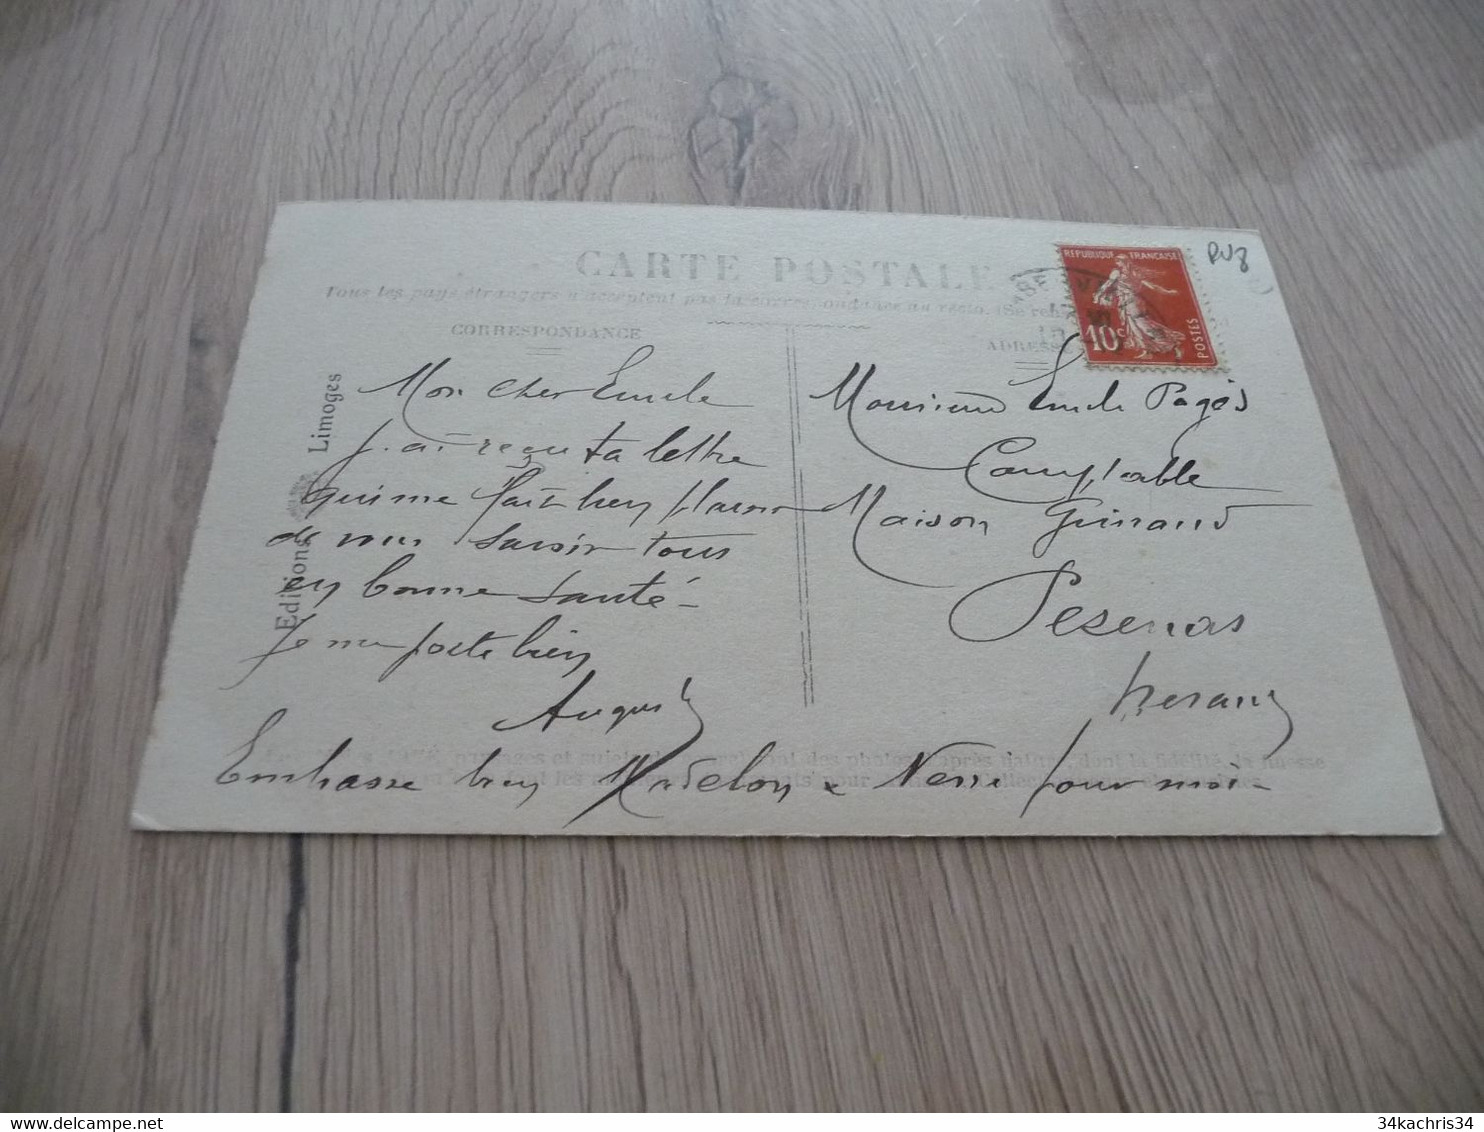 CARTE POSTALE
Tous les pays étrangers n'acceptent pas la correspondance au recto. (Se
CORRESPONDANCE
ADRESSE
REPUBLIQUE FRANÇAISE
10c
POSTES
Editions
Limoges
Mon cher Emile
J'ai reçu ta lettre
qui me fait bien plaisir
de vous savoir tous
en bonne santé -
Je me porte bien
August
Embrasse bien Madelon & Néné pour moi -
Monsieur Emile Pagès
Comptable
Maison Guiraud
Pezenas
Herault
34kachris34